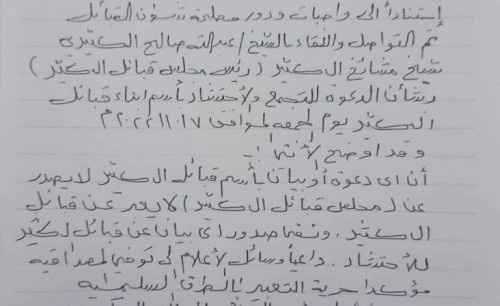 إستناداً إلى واجبات ودور مصلحة شؤون القبائل
تم التواصل واللقاء بالشيخ / عبدالله صالح الكثيري
شيخ مشائخ ال كثير ( رئيس مجلس قبائل ال كثير )
بشأن الدعوة للتجمع والاحتشاد باسم ابناء قبائل
ال كثير يوم الجمعه الموافق
وقد اوضح الأتي :-
أن اي دعوة أو بيان باسم قبائل ال كثير لا يصدر
عن ( مجلس قبائل ال كثير ) لا يعبر عن قبائل
ال كثير . ونفى صدور اي بيان عن قبائل ال كثير
للأحتشاد . داعياً وسائل الأعلام الى توخي المصداقية
مؤكداً حرية التعبير بالطرق السلمية